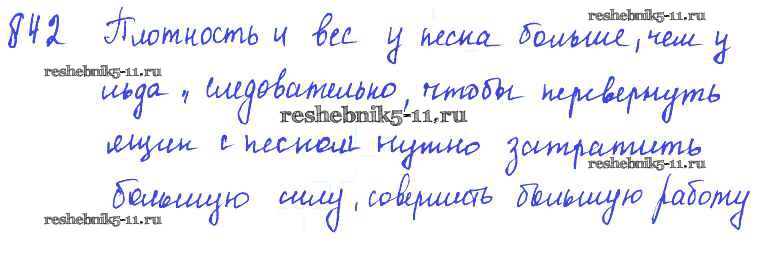 reshebnik5-11.ru
842 Плотность и вес у песка больше, чем у
reshebnik5-11.ru
льда, следовательно, чтобы перевернуть
reshebnik5-11.ru
ящик с песком нужно затратить
reshebnik5-11.ru
большую силу, совершить большую работу
reshebnik5-11.ru